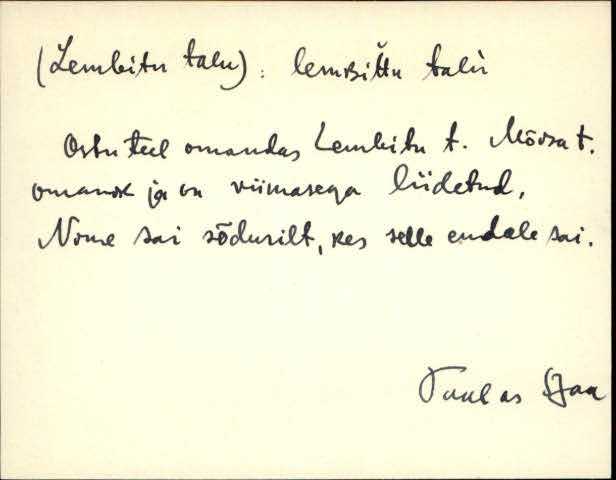 (Lembitu talu): lembittu talù
Ostu teel omandas Lembitu t. Mõisa t.
omanik ja on viimasega liidetud.
Nime sai sõdurilt, kes selle endale sai.